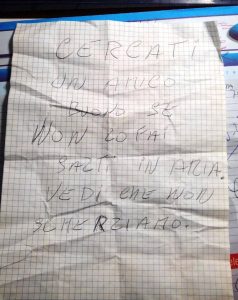 CERCATI
UN AMICO
BUONO SE
NON LO FAI
SALTI IN ARIA.
VEDI CHE NON
SCHERZIAMO.